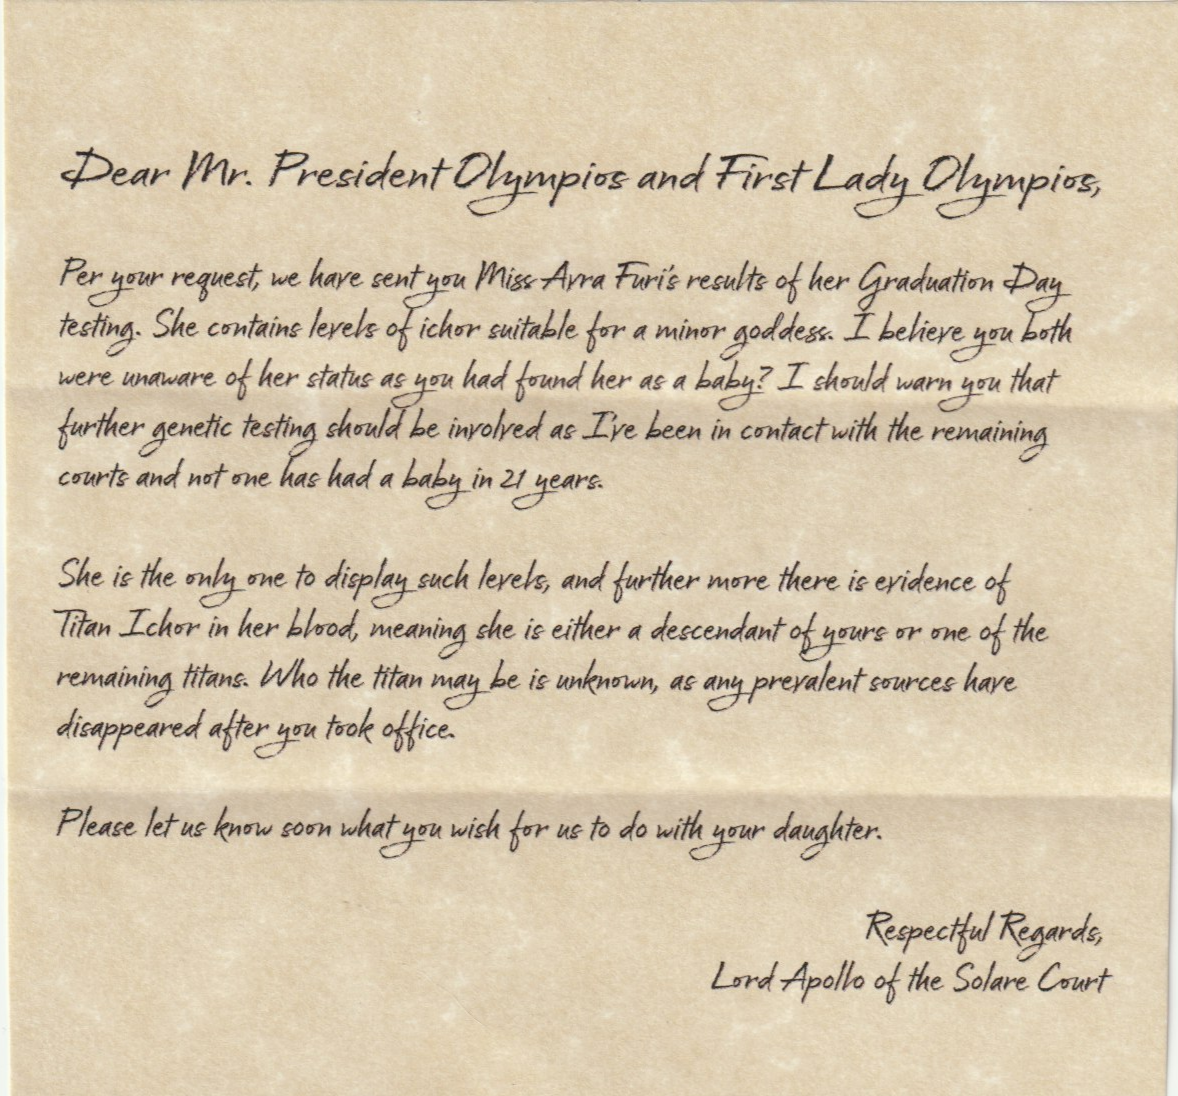 Dear Mr. President Olympios and First Lady Olympios,
Per your request, we have sent you Miss Avra Furi's results of her Graduation Day
testing. She contains levels of ichor suitable for a minor goddess. I believe you both
were unaware of her status as you had found her as a baby? I should warn you that
further genetic testing should be involved as I've been in contact with the remaining
courts and not one has had a baby in 21 years.
She is the only one to display such levels, and further more there is evidence of
Titan Ichor in her blood, meaning she is either a descendant of yours or one of the
remaining titans. Who the titan may be is unknown, as any prevalent sources have
disappeared after you took office.
Please let us know soon what you wish for us to do with your daughter.
Respectful Regards,
Lord Apollo of the Solare Court